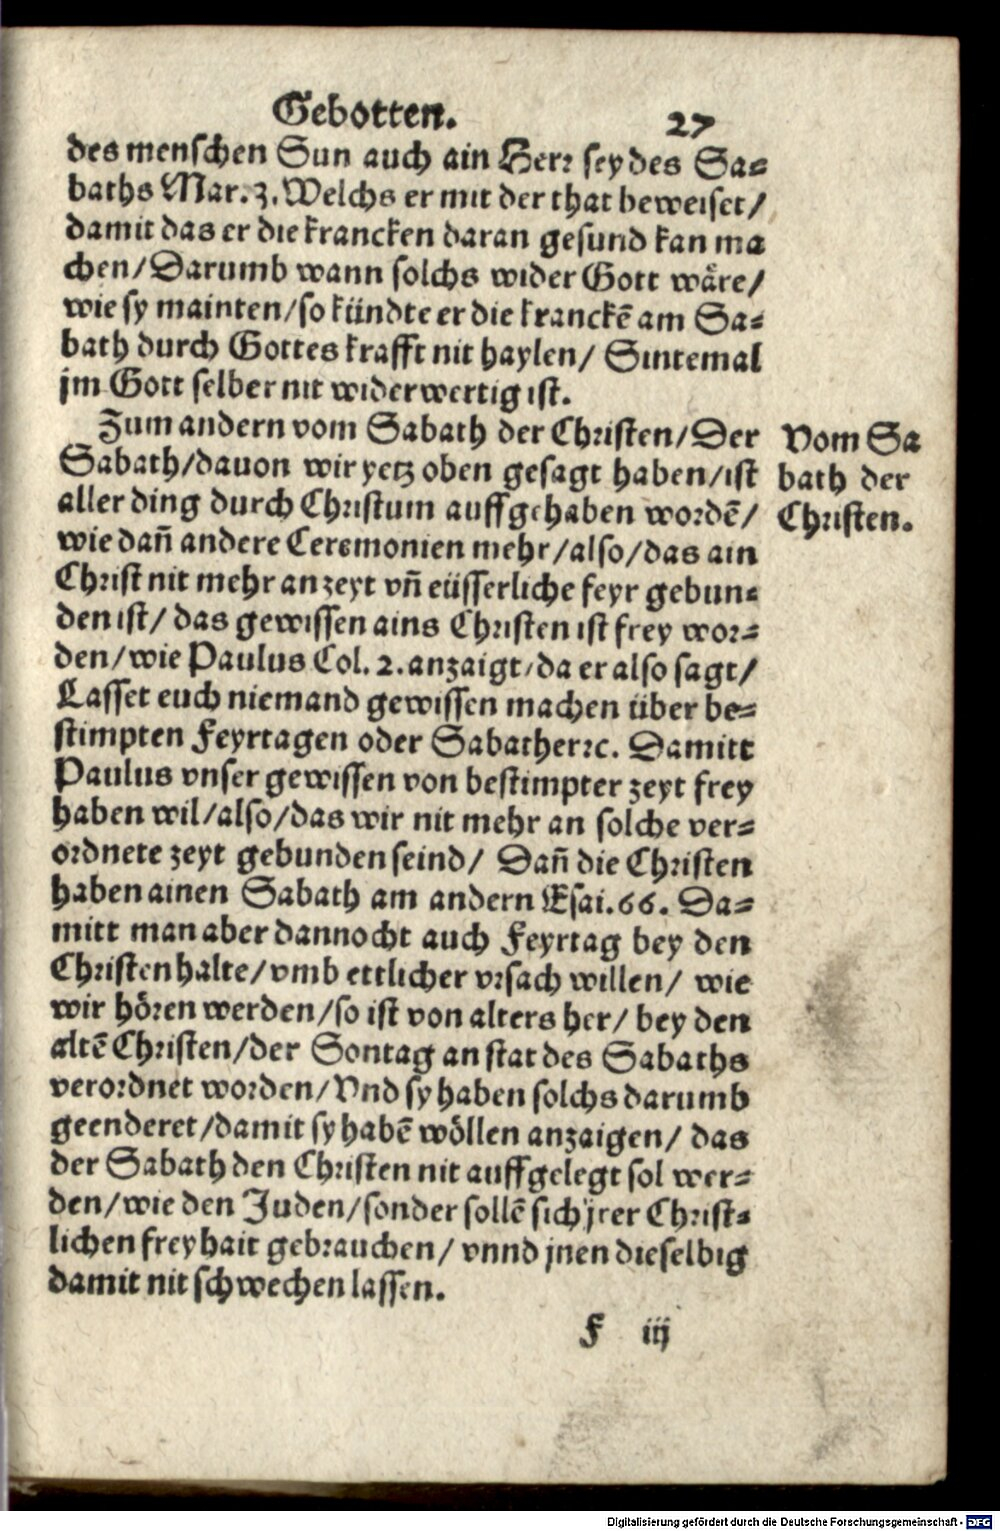 Gebotten. 27
des menschen Sun auch ain Herr sey des Sa⸗
baths Mar. 3. Welchs er mit der that beweiset/
damit das er die krancken daran gesund kan ma
chen/ Darumb wann solchs wider Gott wäre/
wie sy mainten/ so kündte er die kranckē am Sa⸗
bath durch Gottes krafft nit haylen/ Sintemal
jm Gott selber nit widerwertig ist.
Zum andern vom Sabath der Christen/ Der
Sabath/ dauon wir yetz oben gesagt haben/ ist
aller ding durch Christum auffgehaben wordē/
wie dañ andere Ceremonien mehr/ also/ das ain
Christ nit mehr an zeyt vñ eüsserliche feyr gebun⸗
den ist/ das gewissen ains Christen ist frey wor⸗
den/ wie Paulus Col. 2. anzaigt/ da er also sagt/
Lasset euch niemand gewissen machen über be⸗
stimpten Feyrtagen oder Sabather ꝛc. Damitt
Paulus vnser gewissen von bestimpter zeyt frey
haben wil/ also/ das wir nit mehr an solche ver⸗
ordnete zeyt gebunden seind/ Dañ die Christen
haben ainen Sabath am andern Esai. 66. Da⸗
mitt man aber dannocht auch Feyrtag bey den
Christen halte/ vmb ettlicher vrsach willen/ wie
wir hören werden/ so ist von alters her/ bey den
altē Christen/ der Sontag an stat des Sabaths
verordnet worden/ Vnd sy haben solchs darumb
geenderet/ damit sy habē wöllen anzaigen/ das
der Sabath den Christen nit auffgelegt sol wer⸗
den/ wie den Juden/ sonder sollē sich jrer Christ⸗
lichen freyhait gebrauchen/ vnnd jnen dieselbig
damit nit schwechen lassen.
Vom Sa
bath der
Christen.
F iij
Digitalisierung gefördert durch die Deutsche Forschungsgemeinschaft - DFG